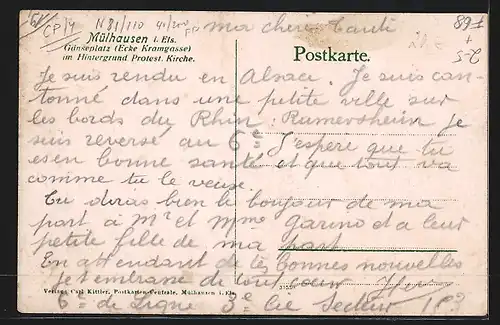 CP/4 N81/110 40/200
ma cheri Tauti
89
Mülhausen i. Els.
Gänseplatz (Ecke Kramgasse)
im Hintergrund Protest. Kirche.
Postkarte.
Je suis rendu en Alsace. Je suis can-
tonné dans une petite ville sur
les bords du Rhin: Rumersheim je
suis reversé au 6e J'espere que tu
es en bonne santé et que tout va
comme tu le veuse.
Tu diras bien le bonjour de ma
part à Mr et Mme Garino et a leur
petite fille de ma part.
En attendant de tes bonnes nouvelles
je t'embrasse de tout coeur
Verlag Carl Kittler, Postkarten-Centrale, Mülhausen i. Els.
6e de Ligne 3e Cie Secteur